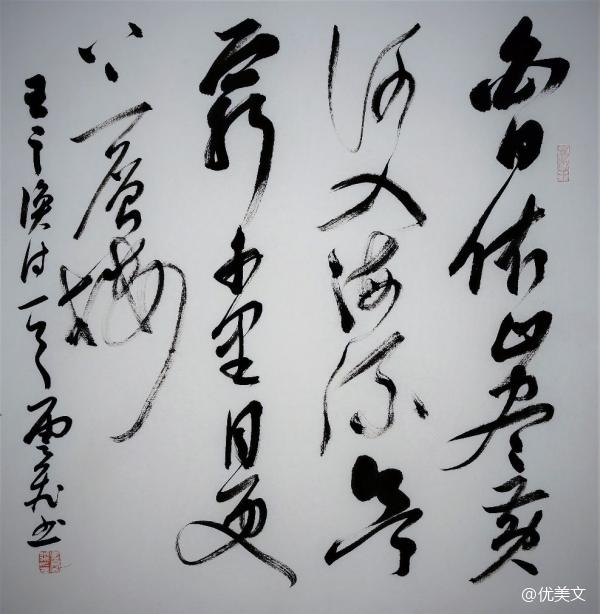 白日依山尽黄
河入海流欲
窮千里目更
上一層楼
王之涣诗一首 雲书
@优美文